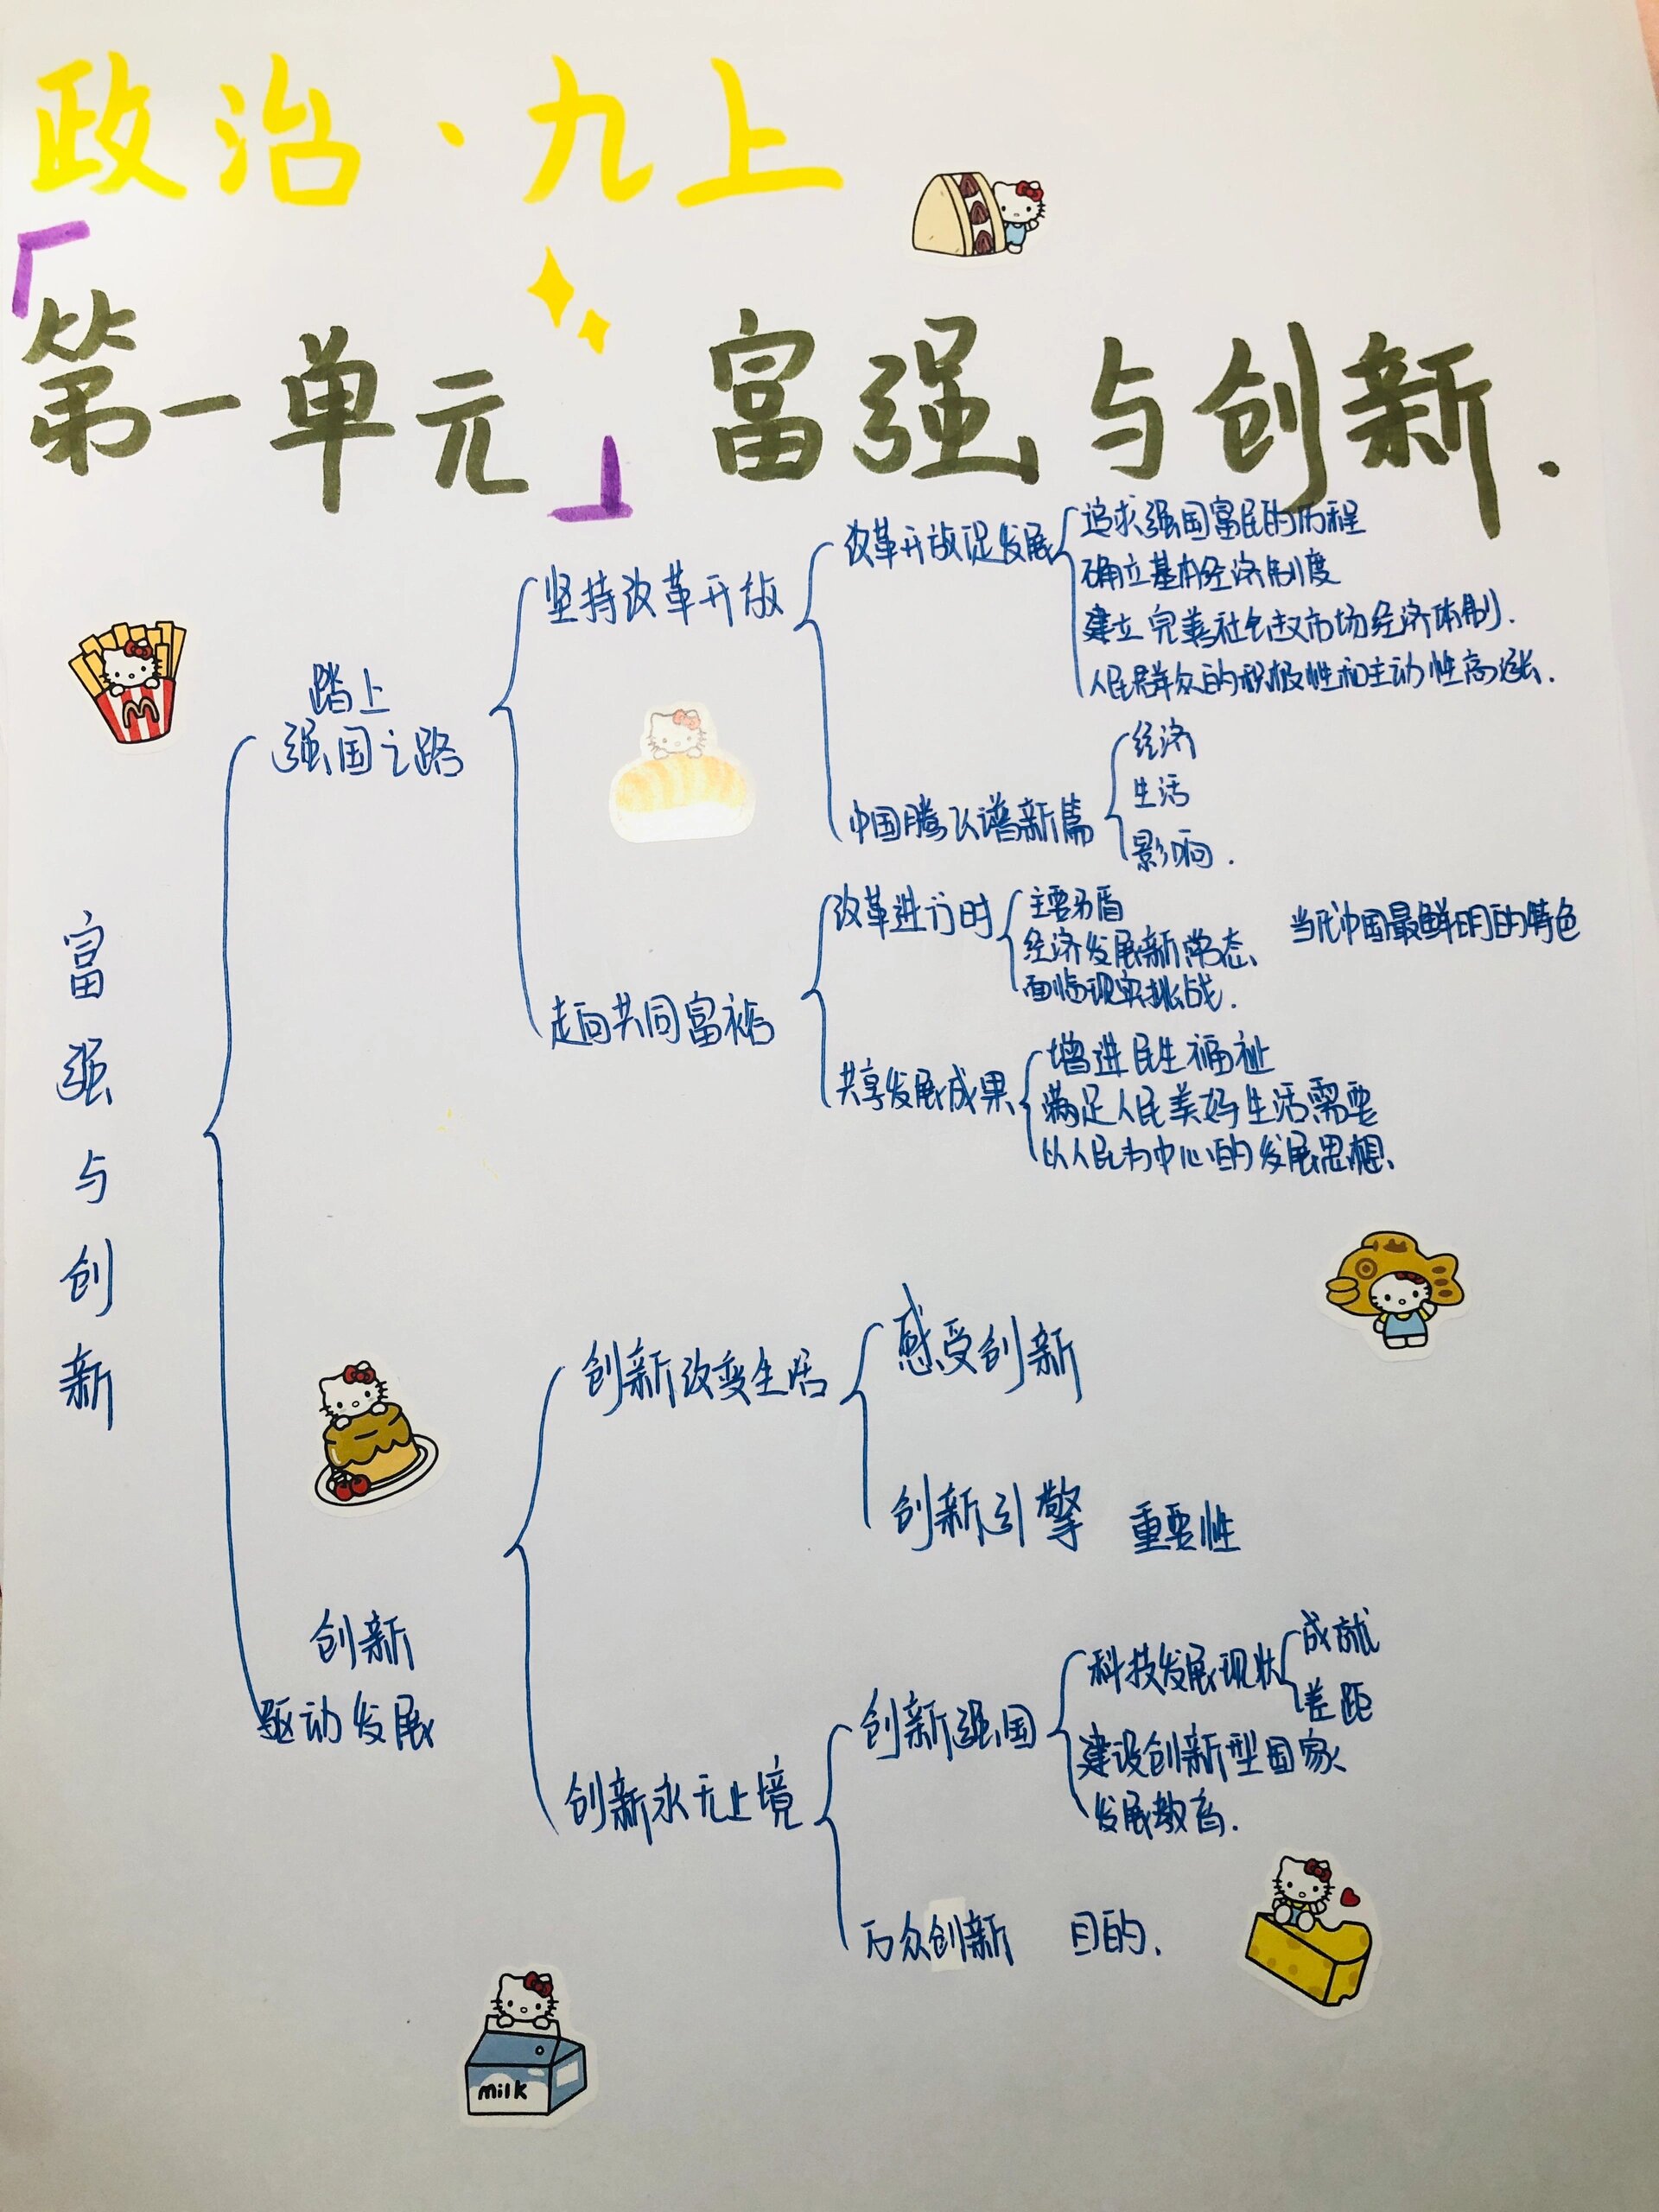 政治·九上
「第一单元」 富强与创新.
富强与创新
踏上
强国之路
坚持改革开放
改革开放促发展
追求强国富民的历程
确立基本经济制度
建立完善社会主义市场经济体制.
人民群众的积极性和主动性高涨.
中国腾飞谱新篇
经济
生活
影响.
走向共同富裕
改革进行时
主要矛盾
经济发展新常态、
面临现实挑战.
当代中国最鲜明的特色
共享发展成果
增进民生福祉
满足人民美好生活需要
以人民为中心的发展思想、
创新
驱动发展
创新改变生活
感受创新
创新引擎 重要性
创新永无止境
创新强国
科技发展现状
成就
差距
建设创新型国家
发展教育.
万众创新 目的、
milk